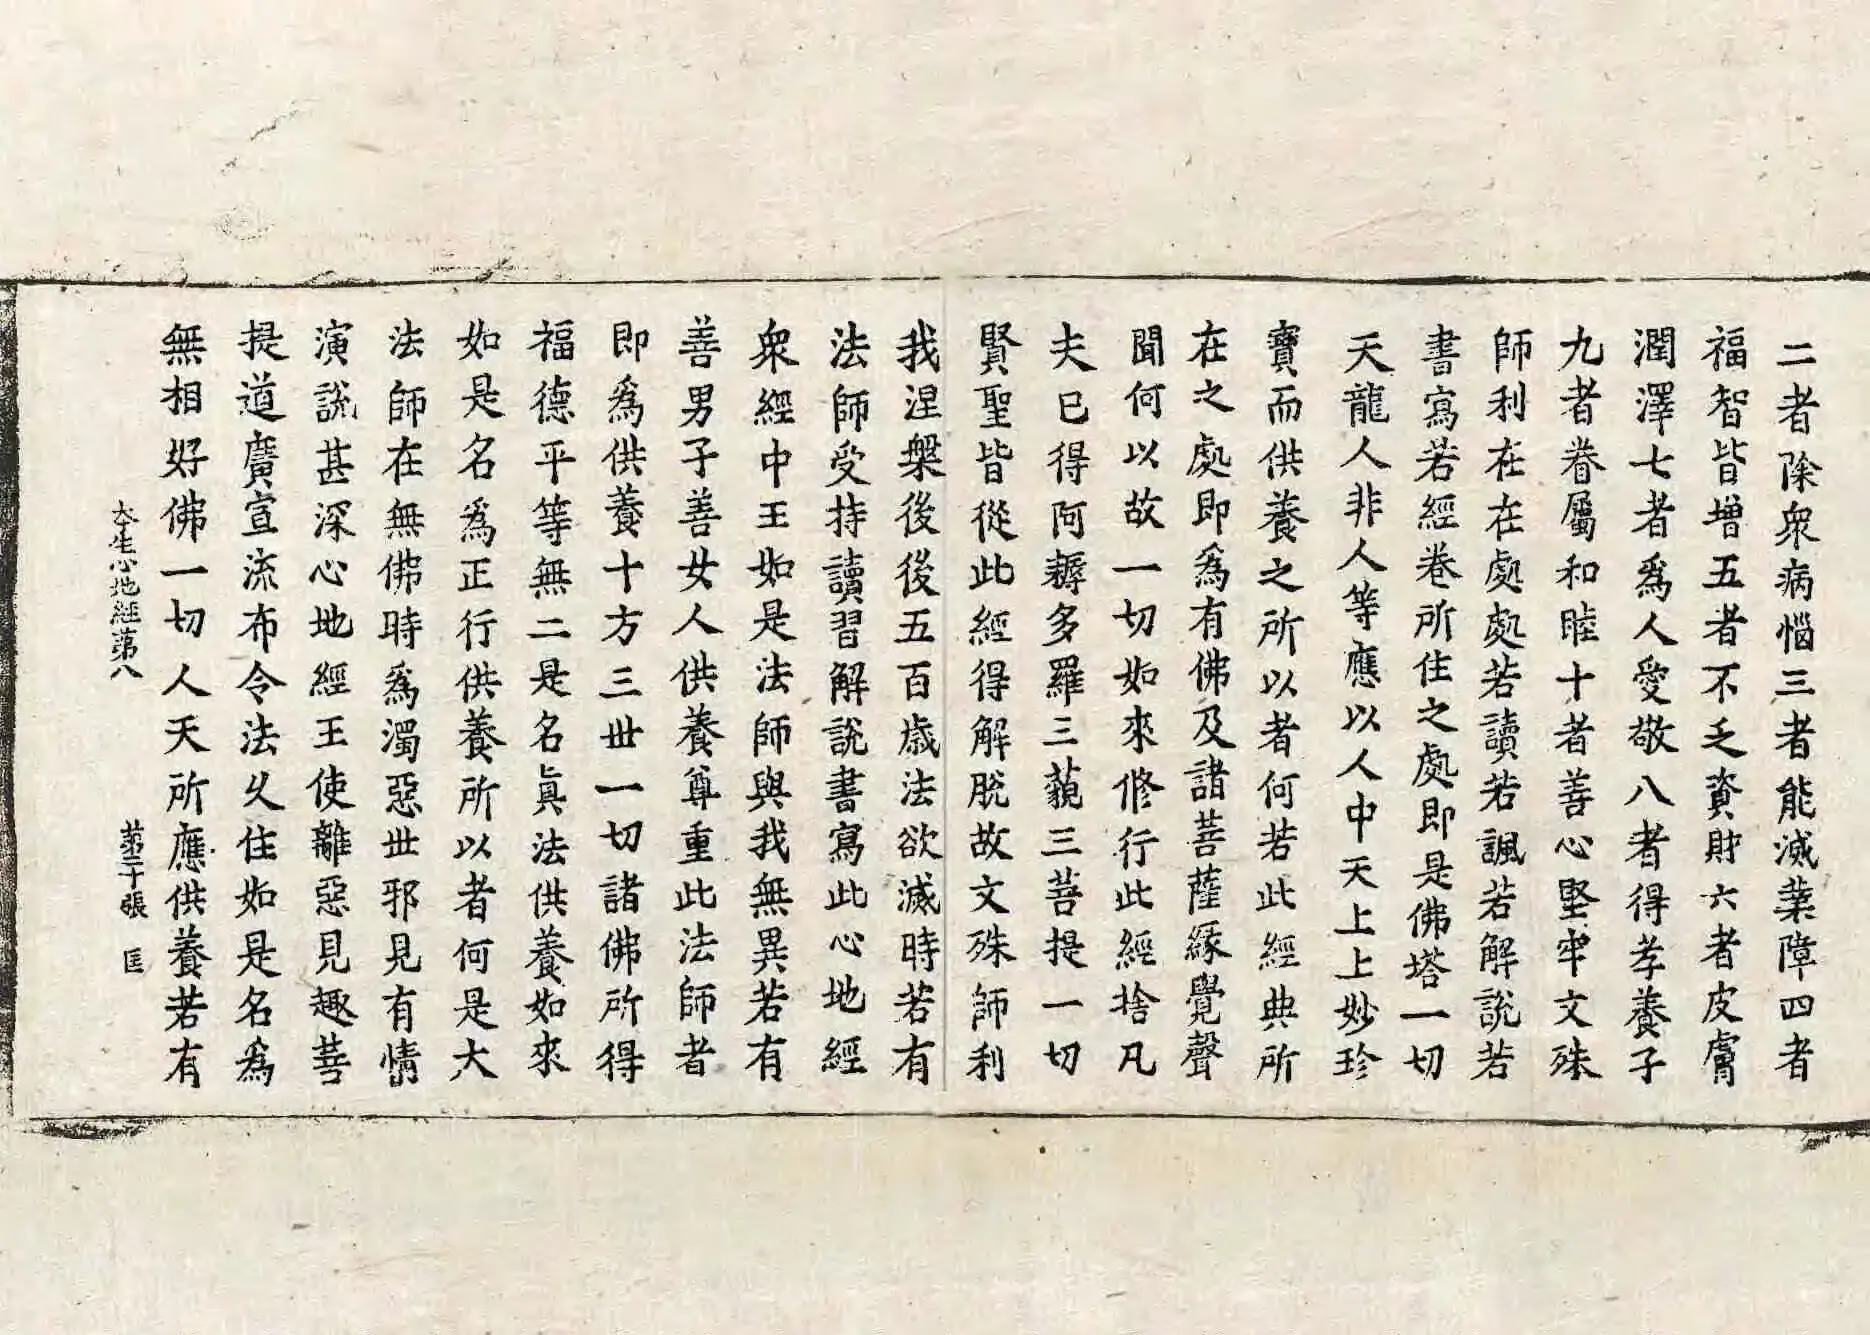 二者除衆病惱三者能滅業障四者
福智皆增五者不乏資財六者皮膚
潤澤七者爲人愛敬八者得孝養子
九者眷屬和睦十者善心堅牢文殊
師利在在處處若讀若諷若解說若
書寫若經卷所住之處即是佛塔一切
天龍人非人等應以人中天上上妙珍
寶而供養之所以者何若此經典所
在之處即爲有佛及諸菩薩緣覺聲
聞何以故一切如來修行此經捨凡
夫已得阿耨多羅三藐三菩提一切
賢聖皆從此經得解脫故文殊師利
我涅槃後後五百歲法欲滅時若有
法師受持讀習解說書寫此心地經
衆經中王如是法師與我無異若有
善男子善女人供養尊重此法師者
即爲供養十方三世一切諸佛所得
福德平等無二是名眞法供養如來
如是名爲正行供養所以者何是大
法師在無佛時爲濁惡世邪見有情
演說甚深心地經王使離惡見趣菩
提道廣宣流布令法久住如是名爲
無相好佛一切人天所應供養若有
大生心地經第八　第二十張　匡